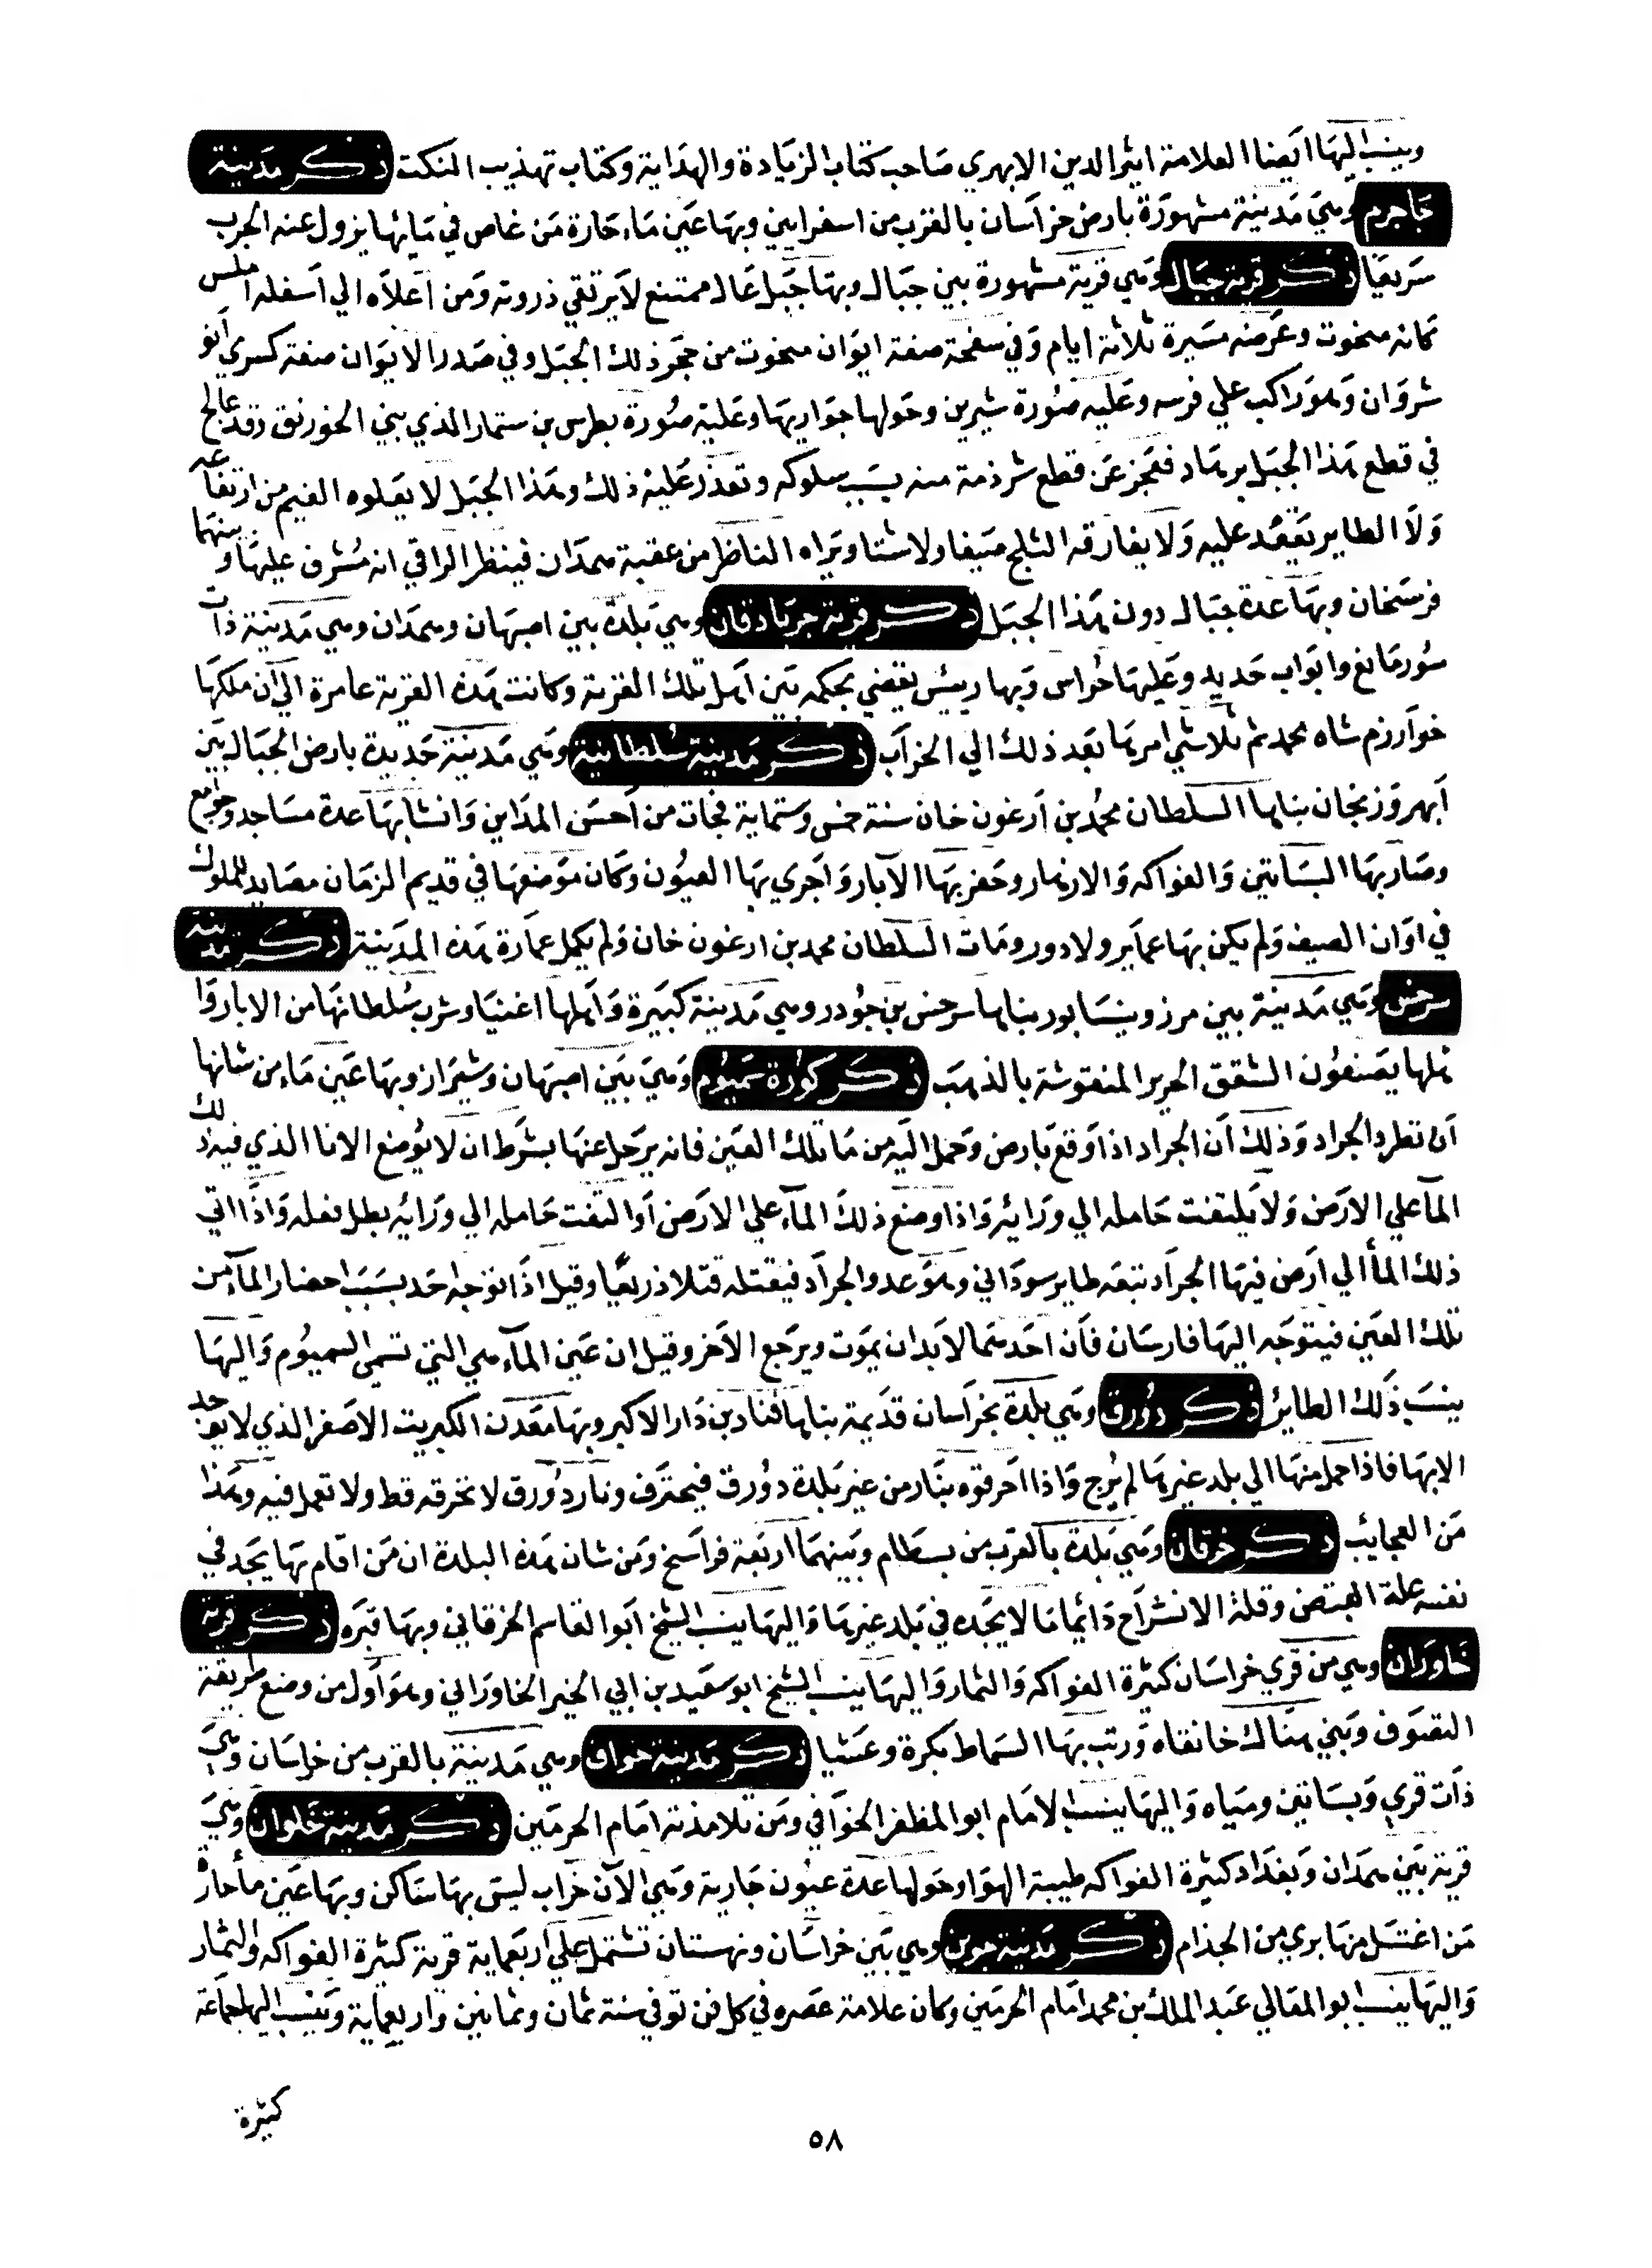 وينسب اليها ايضا العلامة اثير الدين الابهري صاحب كتاب الزيادة والهداية وكتاب تهذيب النكت ذكر مدينة
جاجرم وهي مدينة مشهورة بارض خراسان بالقرب من اسفرايين وبها عين ماء حارة من غاص في مائها يزول عنه الجرب
سريعا ذكر قرية جبال وهي قرية مشهورة بين جبال وبها جبل عال ممتنع لا يرتقي ذروته ومن اعلاه الي اسفله املس
كانه منحوت وعرضه مسيرة ثلاثة ايام وفي سفحة صفة ايوان منحوت من حجر ذلك الجبل وفي صدر الايوان صفة كسري انو
شروان وهو راكب علي فرسه وعليه صورة شيرين وحولها جواريها وعليه صورة بطرس بن ستمار الذي بني الخورنق وقد عالج
في قطع هذا الجبل برهاد فعجز عن قطع شرذمة منه بسبب سلوكه وتعذر عليه ذلك وهذا الجبل لا يعلوه الغيم من ارتفاعه
ولا الطاير يقعد عليه ولا يفارقه الثلج صيفا ولا شتا ويراه الناظر من عقبة همدان فينظر الراقي انه مشرف عليها وبينهما
فرسخان وبها عدة جبال دون هذا الجبل ذكر قرية جرباذقان وهي بلدة بين اصبهان وهمدان وهي مدينة ذات
سور مانع وابواب حديد وعليها حراس وبها رييس يقضي بحكمه بين اهل تلك القرية وكانت هذه القرية عامرة الي ان ملكها
خوارزم شاه محمد ثم تلاشي امرها بعد ذلك الي الخراب ذكر مدينة سلطانية وهي مدينة جديدة بارض الجبال بين
ابهر وزنجان بناها السلطان محمد بن ارغون خان سنة خمس وستماية فجات من احسن المداين وانشا بها عدة مساجد وجوامع
وصار بها البساتين والفواكه والازهار وحفر بها الآبار واجري بها العيون وكان موضعها في قديم الزمان مصايد للملوك
في اوان الصيف ولم يكن بها عماير ولا دور ومات السلطان محمد بن ارغون خان ولم يكمل عمارة هذه المدينة ذكر مدينة
سرخس وهي مدينة بين مرو ونيسابور بناها سرخس بن جودر وهي مدينة كبيرة واهلها اغنيا وشرب سلطانها من الابار وا
هلها يصنعون الشقق الحرير المنقوشة بالذهب ذكر كورة سميوم وهي بين اصبهان وشيراز وبها عين ماء من شانها
ان تطرد الجراد وذلك ان الجراد اذا وقع بارض وحمل اليه من ما تلك العين فانه يرحل عنها بشرط ان لا يوضع الانا الذي فيه ذلك
المآ علي الارض ولا يلتفت حامله الي ورائه واذا وضع ذلك المآء علي الارض او التفت حامله الي ورائه بطل فعله واذا اتي
ذلك المأ الي ارض فيها الجراد تبعه طاير سوداني وهو عدو الجراد فيقتله قتلا ذريعًا وقيل اذا توجه احد بسبب احضار المآء من
تلك العين فيتوجه اليها فارسان فان احدهما لابد ان يموت ويرجع الاخر وقيل ان عين المآء هي التي تسمي السميوم واليها
ينسب ذلك الطائر ذكر دورق وهي بلدة بخراسان قديمة بناها قناد بن دارا الاكبر وبها معدن الكبريت الاصفر الذي لا يوجد
الا بها فاذا حمل منها الي بلد غيرها لم يرج واذا احرقوه بنار من غير بلدة دورق فيحترق ونار دورق لا تحرقه قط ولا تعمل فيه وهذا
من العجائب ذكر خرقان وهي بلدة بالقرب من بسطام وبينهما اربعة فراسخ ومن شان هذه البلدة ان من اقام بها يجد في
نفسه علة القبض وقلة الانشراح دائما ما لا يجده في بلد غيرها واليها ينسب الشيخ ابو القاسم الخرقاني وبها قبره ذكر قرية
خاوران وهي من قري خراسان كثيرة الفواكه والثمار واليها ينسب الشيخ ابو سعيد بن ابي الخير الخاوراني وهو اول من وضع طريقة
التصوف وبني هناك خانقاه ورتب بها السماط بكرة وعشيا ذكر مدينة خواف وهي مدينة بالقرب من خراسان وهي
ذات قري وبساتين ومياه واليها ينسب الامام ابو المظفر الخوافي ومن تلامذته امام الحرمين ذكر مدينة حلوان وهي
قرية بين همدان وبغداد كثيرة الفواكه طيبة الهوا وحولها عدة عيون جارية وهي الآن خراب ليس بها ساكن وبها عين مأ حارة
من اغتسل منها بري من الجذام ذكر مدينة جوين وهي بين خراسان ونهستان تشتمل علي اربعماية قرية كثيرة الفواكه والثمار
واليها ينسب ابو المعالي عبد الملك بن محمد امام الحرمين وكان علامة عصره في كل فن توفي سنة ثمان وثمانين واربعماية وينسب اليها جماعة
كثيرة
٥٨